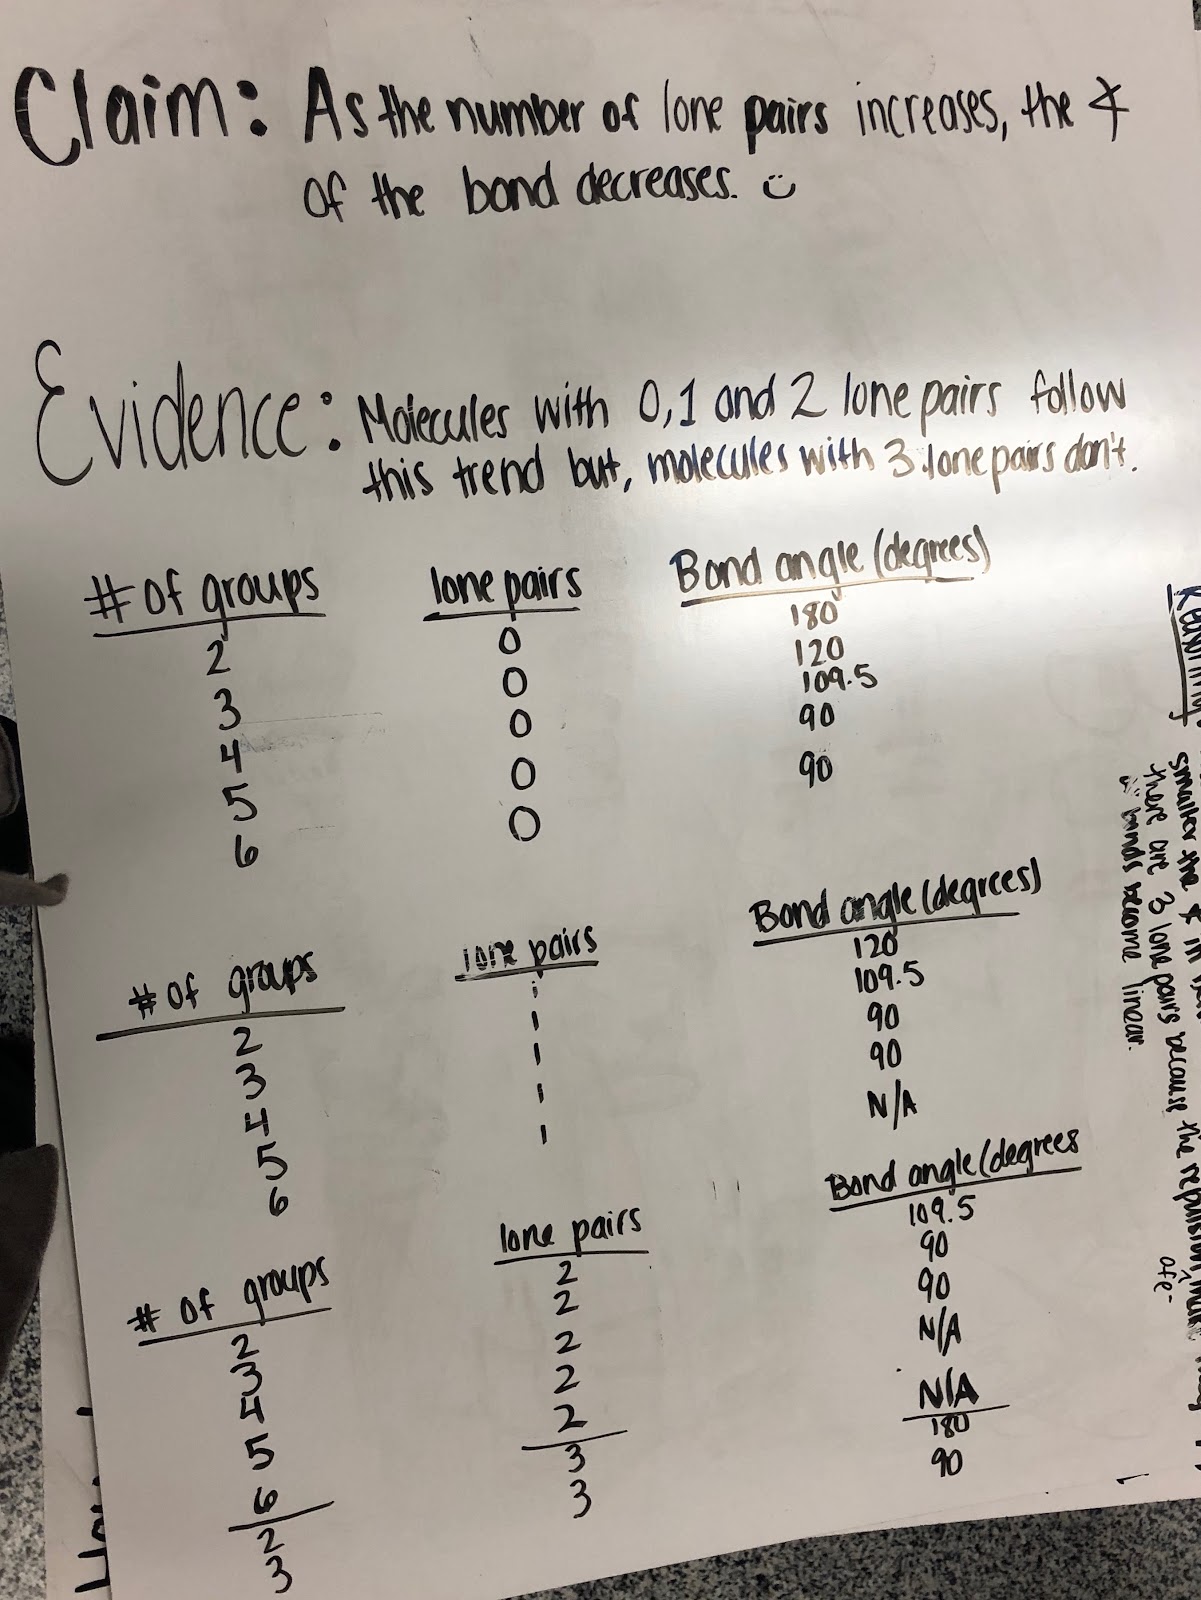 Claim: As the number of lone pairs increases, the ∡
of the bond decreases. ☺
Evidence: Molecules with 0, 1 and 2 lone pairs follow
this trend but, molecules with 3 lone pairs don't.
# of groups lone pairs Bond angle (degrees)
2 0 180
3 0 120
4 0 109.5
5 0 90
6 0 90
# of groups lone pairs Bond angle (degrees)
2 1 120
3 1 109.5
4 1 90
5 1 90
6 1 N/A
# of groups lone pairs Bond angle (degrees
2 2 109.5
3 2 90
4 2 90
5 2 N/A
6 2 N/A
2 3 180
3 3 90
smaller the ∡ in
there are 3 lone pairs because the repulsion
are
bonds become linear.